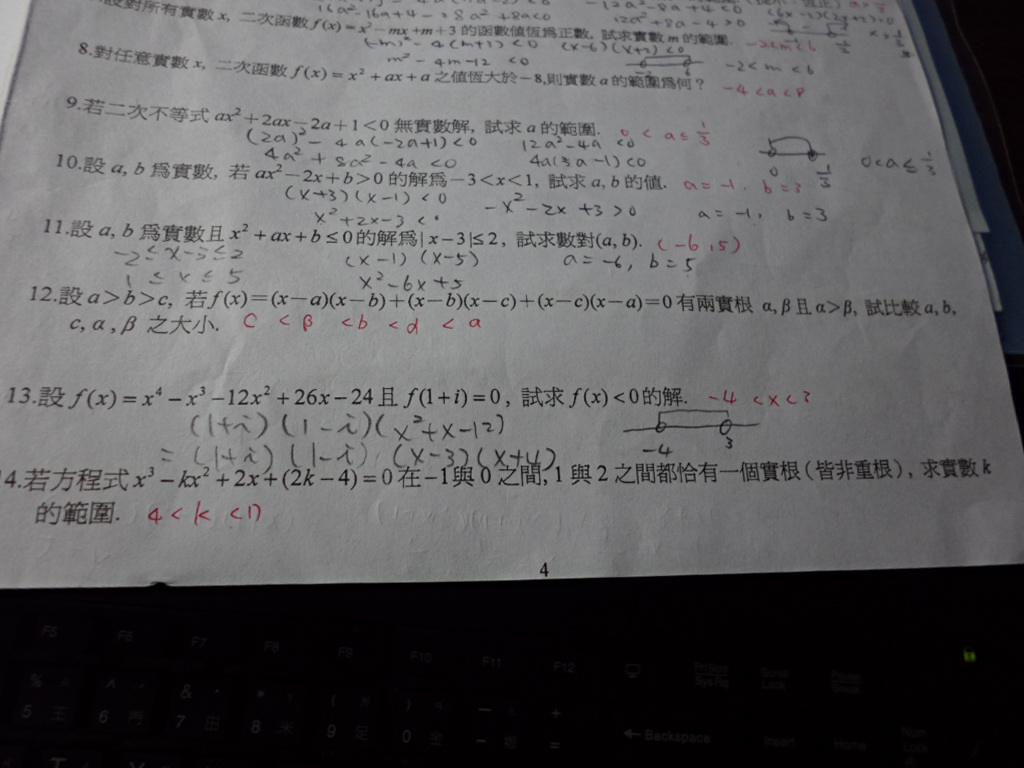 設對所有實數 x, 二次函數 f(x)=x²−mx+m+3 的函數值恆爲正數, 試求實數 m 的範圍. -2<m<6
(-m)² - 4(m+1) < 0 (x-6)(x+2) < 0
m² - 4m - 12 < 0 -2 < m < 6
8.對任意實數 x, 二次函數 f(x)=x²+ax+a 之値恆大於−8,則實數 a 的範圍爲何? -4<a<8
9.若二次不等式 ax²+2ax−2a+1<0 無實數解, 試求 a 的範圍. 0 < a ≤ 1/3
(2a)² - 4a(-2a+1) < 0 12a² - 4a < 0
4a² + 8a² - 4a < 0 4a(3a-1) < 0 0 1/3 0<a≤1/3
10.設 a, b 爲實數, 若 ax²−2x+b>0 的解爲−3<x<1, 試求 a, b 的値. a=-1, b=3
(x+3)(x-1) < 0 -x²-2x+3>0 a=-1, b=3
x²+2x-3 <
11.設 a, b 爲實數且 x²+ax+b≤0的解爲| x−3|≤2, 試求數對(a, b). (-6,5)
-2≤x-3≤2 (x-1)(x-5) a=-6, b=5
1 ≤ x ≤ 5 x²-6x+5
12.設 a>b>c, 若 f(x)=(x−a)(x−b)+(x−b)(x−c)+(x−c)(x−a)=0 有兩實根 α, β 且 α>β, 試比較 a, b,
c, α , β 之大小. c < β < b < α < a
13.設 f(x)=x⁴−x³−12x²+26x−24且 f(1+i)=0, 試求 f(x)<0的解. -4 <x<3
(1+i)(1-i)(x²+x-12) -4 3
=(1+i)(1-i)(x-3)(x+4)
4.若方程式 x³−kx²+2x+(2k−4)=0 在−1與 0 之間, 1 與 2 之間都恰有一個實根(皆非重根), 求實數 k
的範圍. 4 < k <17
4
F5 F6 F7 F8 F9 F10 F11 F12
% 5 ^ 6 & 7 * 8 ( 9 ) 0 − + =
Backspace Insert Home